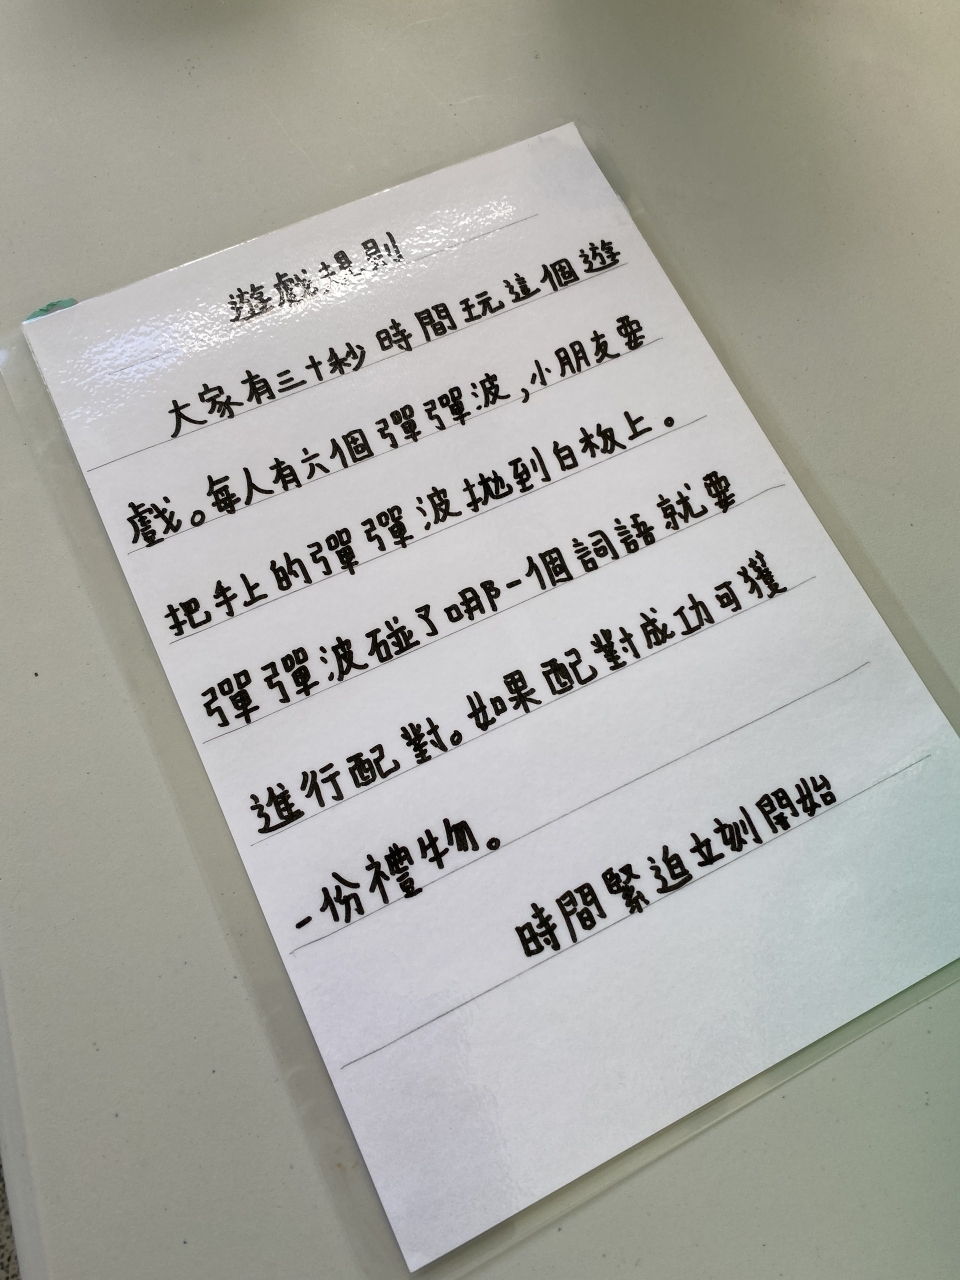 遊戲規則
大家有三十秒時間玩這個遊
戲。每人有六個彈彈波,小朋友要
把手上的彈彈波拋到白板上。
彈彈波碰了哪一個詞語就要
進行配對。如果配對成功可獲
一份禮物。
時間緊迫立刻開始